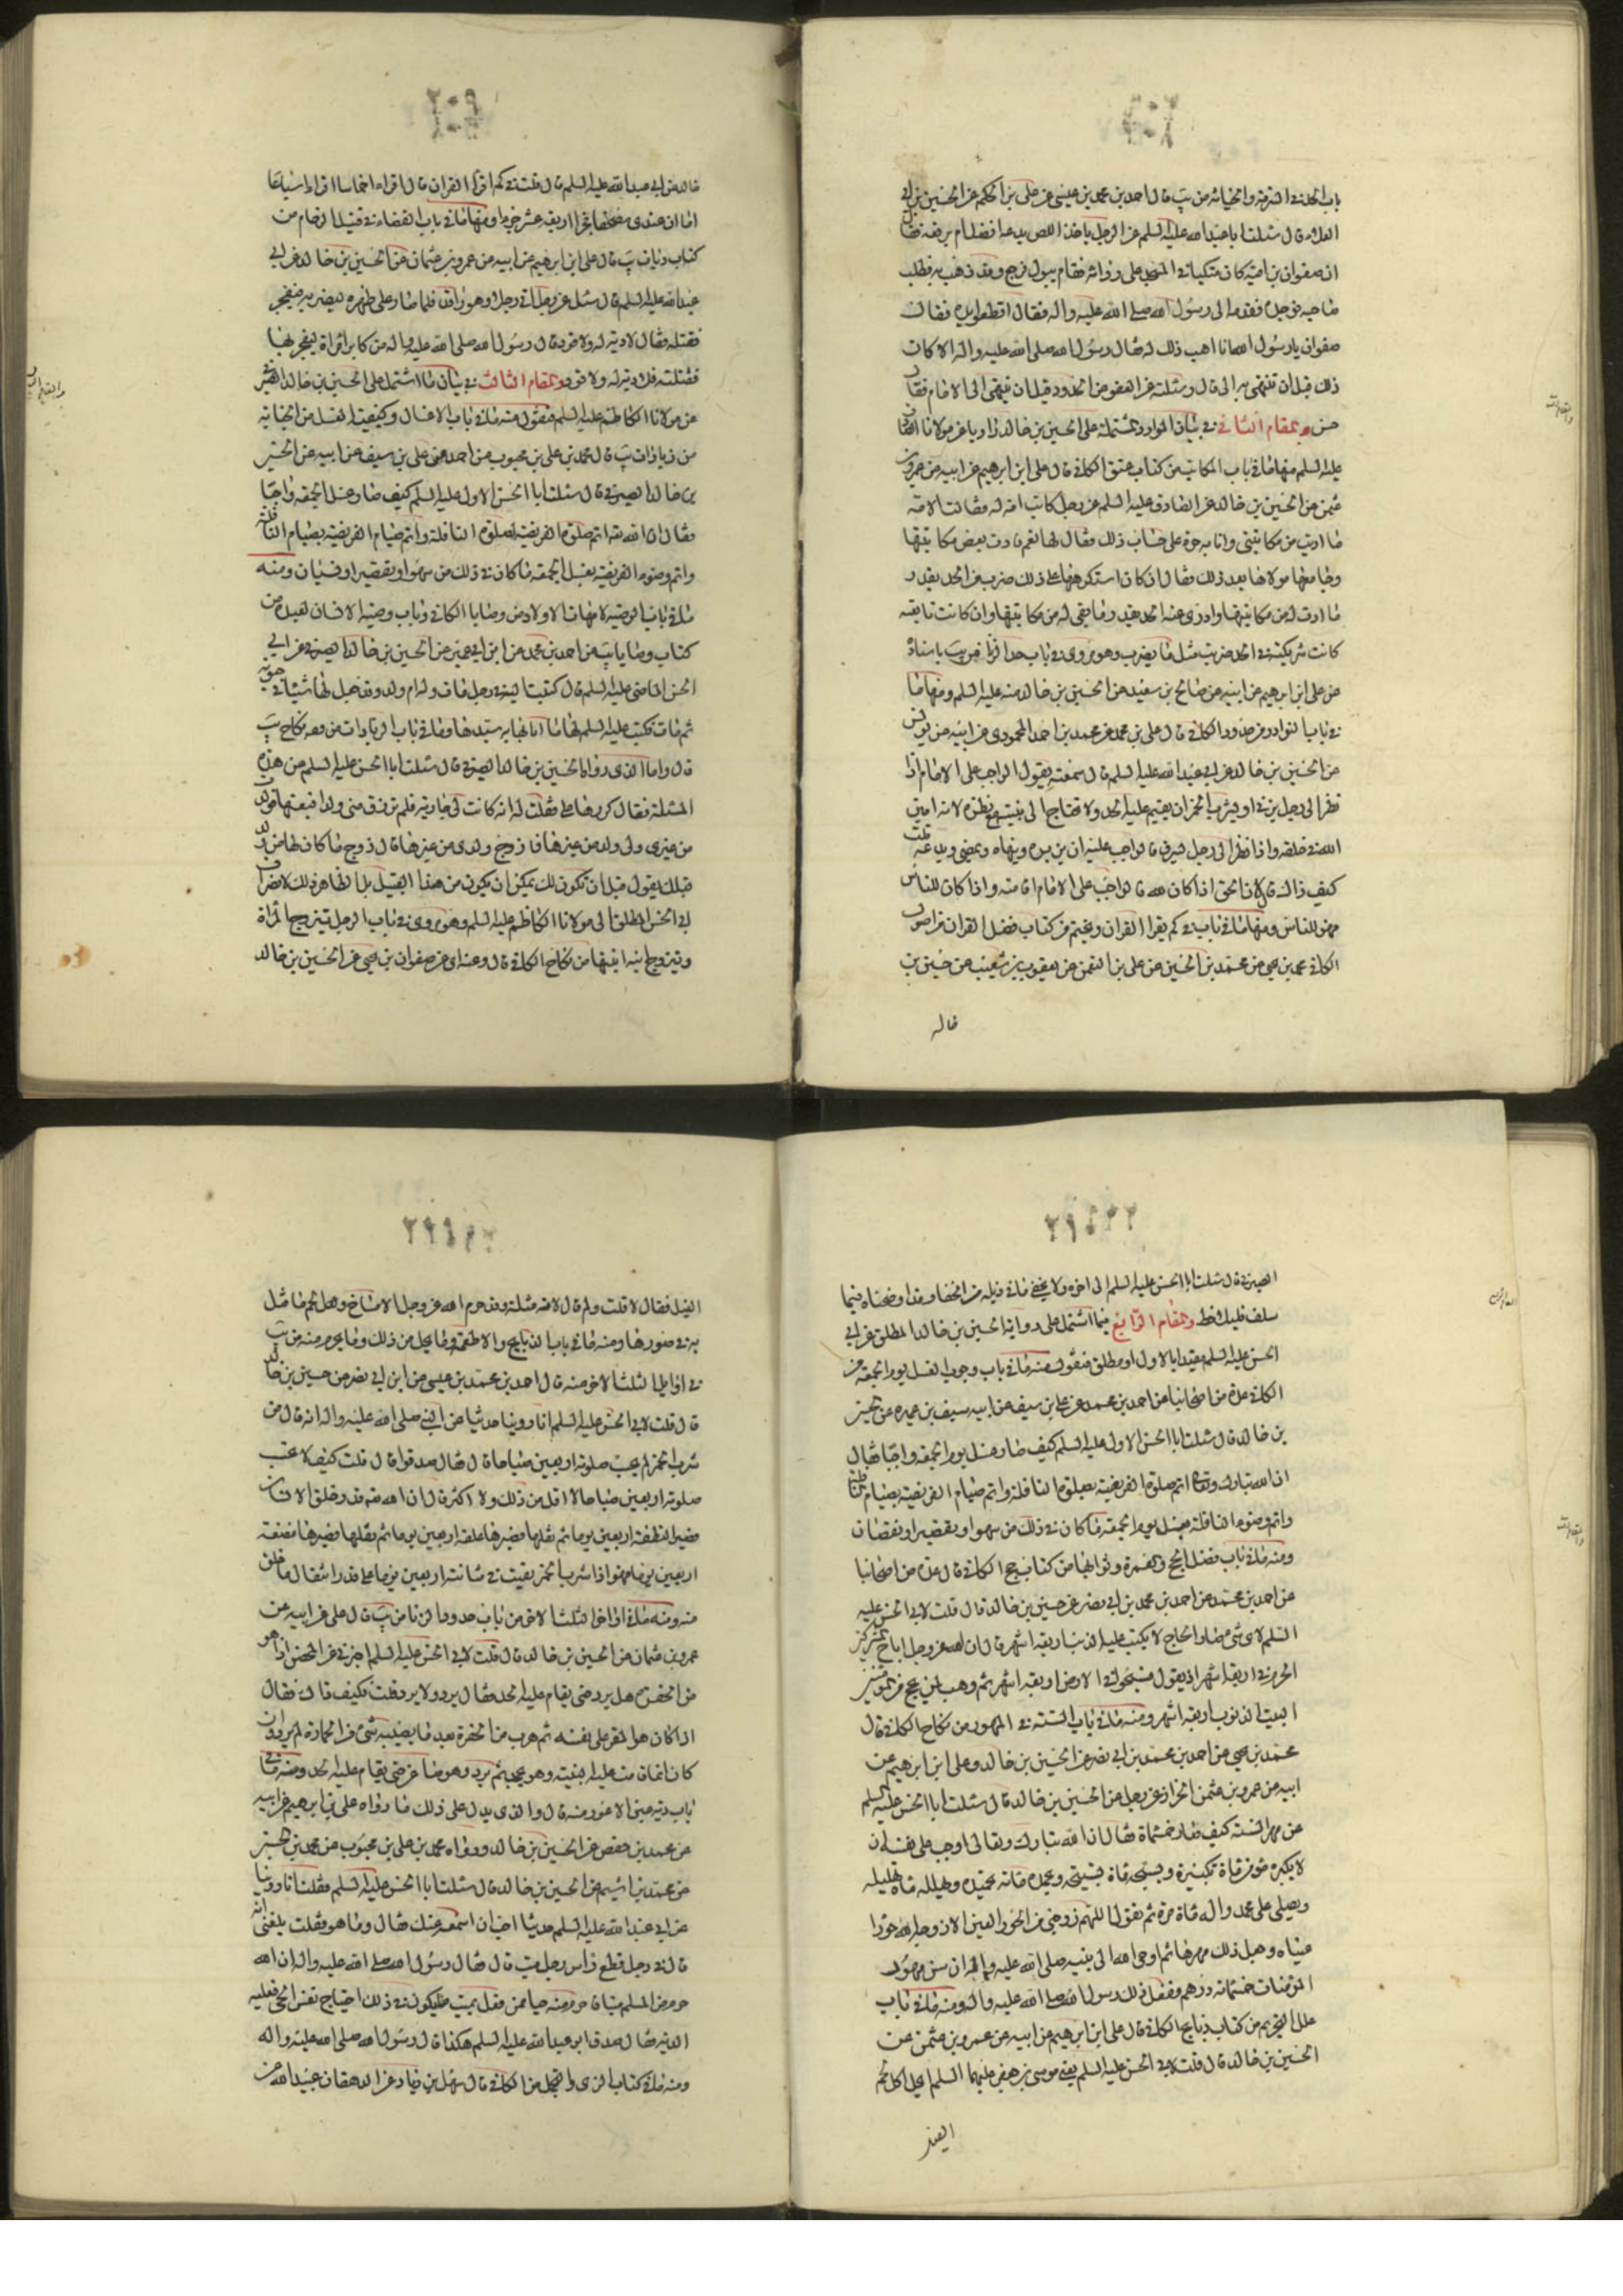 باب الحد في السرقة والخيانة من يب قال احمد بن محمد بن عيسى عن على بن الحكم عن الحسين بن ابى
العلا قال سئلت ابا عبد الله عليه السلم عن الرجل ياخذ اللص يدعه افضل ام يرفعه فقال
ان صفوان بن امية كان متكيا في المسجد على ردائه فقام يبول فرجع وقد ذهب به فطلب
صاحبه فوجده فقدمه الى رسول الله صلى الله عليه واله فقال اقطعوا يده فقال
صفوان يا رسول الله انا اهب ذلك له فقال رسول الله صلى الله عليه واله الا كان
ذلك قبل ان تنتهى به الى قال وسئلته عن العفو عن الحدود قبل ان ينتهى الى الامام فقال
حسن والمقام الثانى في بيان الموارد المشتملة على الحسين بن خالد راويا عن مولانا الصادق
عليه السلم منها ما في باب المكاتب من كتاب عتق الكافى قال على ابن ابرهيم عن ابيه عن عمرو بن
عثمن عن الحسين بن خالد عن الصادق عليه السلم عن رجل كاتب امة له فقالت الامة
ما اديت من مكاتبتى وانا به حرة على حساب ذلك فقال لها نعم فادت بعض مكاتبتها
وجامعها مولاها بعد ذلك فقال ان كان استكرهها على ذلك ضرب من الحد بقدر
ما ادت له من مكاتبتها وادرئ عنه الحد بقدر ما بقى له من مكاتبتها وان كانت تابعته
كانت شريكته في الحد ضربت مثل ما يضرب وهو مروى في باب حد الزنا من يب باسناده
عن على ابن ابرهيم عن ابيه عن صالح بن سعيد عن الحسين بن خالد عنه عليه السلم ومنها ما
في باب النوادر من حدود الكافى قال على بن محمد عن محمد بن احمد المحمودى عن ابيه عن يونس
عن الحسين بن خالد عن ابى عبد الله عليه السلم قال سمعته يقول الواجب على الامام اذا
نظر الى رجل يزنى او يشرب الخمر ان يقيم عليه الحد ولا يحتاج الى بينة مع نظره لانه امين
الله في خلقه واذا نظر الى رجل يسرق فالواجب عليه ان يزبره وينهاه ويمضى ويدعه قلت
كيف ذاك قال لان الحق اذا كان لله فالواجب على الامام اقامته واذا كان للناس
فهو للناس ومنها ما في باب في كم يقرا القران ويختم من كتاب فضل القران من اصول
الكافى محمد بن يحيى عن محمد بن الحسين عن على بن النعمن عن يعقوب بن شعيب عن حسين بن
خالد
خالد عن ابى عبد الله عليه السلم قال قلت في كم اقرأ القران قال اقراه اخماسا اقراه اسباعا
اما ان عندى مصحفا مجزا اربعة عشر جزءا ومنها ما في باب القضاء في قتيل الزحام من
كتاب ديات يب قال على ابن ابرهيم عن ابيه عن عمرو بن عثمان عن الحسين بن خالد عن ابى
عبد الله عليه السلم قال سئل عن رجل اتى رجلا وهو راقد فلما صار على ظهره ليضربه بعج
فقتله فقال لا دية له ولا قود قال رسول الله صلى الله عليه واله من كابر امراة ليفجر بها
فقتلته فلا دية له ولا قود والمقام الثالث في بيان ما اشتمل على الحسين بن خالد الصيرفى
عن مولانا الكاظم عليه السلم فنقول منه ما في باب الاغسال وكيفية الغسل من الجنابة
من زيادات يب قال محمد بن على بن محبوب عن احمد عن على بن سيف عن ابيه عن الحسين
بن خالد الصيرفى قال سئلت ابا الحسن الاول عليه السلم كيف صار غسل الجمعة واجبا
فقال ان الله تع اتم صلوة الفريضة بصلوة النافلة واتم صيام الفريضة بصيام النافلة
واتم وضوء الفريضة بغسل الجمعة ما كان في ذلك من سهو او تقصير او نسيان ومنه
ما في باب الوصية لامهات الاولاد من وصايا الكافى وباب وصية الانسان لعبده من
كتاب وصايا يب عن احمد بن محمد عن ابن ابى عمير عن الحسين بن خالد الصيرفى عن ابى
الحسن الماضى عليه السلم قال كتبت اليه في رجل مات وله ام ولد وقد جعل لها شيئا في حيوته
ثم مات فكتب عليه السلم لها ما اثابها به سيدها وما في باب الزيادات من فقه نكاح يب
قال واما الذى رواه الحسين بن خالد الصيرفى قال سئلت ابا الحسن عليه السلم عن هذه
المسئلة فقال كررها على فقلت له انه كانت لى جارية فلم ترزق منى ولدا فبعتها فولدت
من غيرى ولى ولد من غيرها فازوج ولدى من غيرها قال زوج ما كان لها من ولد
قبلك يقول قبل ان تكون لك يمكن ان يكون من هذا القبيل بل الظاهر ذلك لانصراف
ابى الحسن المطلق الى مولانا الكاظم عليه السلم وهو مروى في باب الرجل يتزوج المراة
ويتزوج ابنه ابنتها من نكاح الكافى قال وعنه اى عن صفوان بن يحيى عن الحسين بن خالد
الصيرفى قال سئلت ابا الحسن عليه السلم الى اخره ولا يخفى ما في قبله من الخفاء وقد اوضحناه فيما
سلف فليلاحظ والمقام الرابع فيما اشتمل على رواية الحسين بن خالد المطلق عن ابى
الحسن عليه السلم مقيدا بالاول او مطلق فنقول منه ما في باب وجوب الغسل يوم الجمعة من
الكافى عدة من اصحابنا عن احمد بن محمد عن على بن سيف عن ابيه سيف بن عميرة عن الحسين
بن خالد قال سئلت ابا الحسن الاول عليه السلم كيف صار غسل يوم الجمعة واجبا فقال
ان الله تبارك وتعالى اتم صلوة الفريضة بصلوة النافلة واتم صيام الفريضة بصيام النافلة
واتم وضوء النافلة بغسل يوم الجمعة ما كان في ذلك من سهو او تقصير او نقصان
ومنه ما في باب فضل الحج والعمرة وثوابهما من كتاب حج الكافى قال عدة من اصحابنا
عن احمد بن محمد عن احمد بن محمد بن ابى نصر عن حسين بن خالد قال قلت لابى الحسن عليه
السلم لاى شئ صار الحاج لا يكتب عليه الذنب اربعة اشهر قال ان الله عز وجل اباح المشركين
الحرم في اربعة اشهر اذ يقول فسيحوا في الارض اربعة اشهر ثم وهب لمن يحج من المؤمنين
البيت الذنوب اربعة اشهر ومنه ما في باب السنة في المهور من نكاح الكافى قال
محمد بن يحيى عن احمد بن محمد بن ابى نصر عن الحسين بن خالد وعلى ابن ابرهيم عن
ابيه عن عمرو بن عثمن الخزاز عن رجل عن الحسين بن خالد قال سئلت ابا الحسن عليه السلم
عن مهر السنة كيف صار خمسماة فقال ان الله تبارك وتعالى اوجب على نفسه ان
لا يكبره مؤمن ماة تكبيرة ويسبحه ماة تسبيحة ويحمده ماة تحميدة ويهلله ماة تهليلة
ويصلى على محمد واله ماة مرة ثم يقول اللهم زوجنى من الحور العين الا زوجه الله حورا
عيناء وجعل ذلك مهرها ثم اوحى الله الى نبيه صلى الله عليه واله ان سن مهور
المؤمنات خمسمائة درهم ففعل ذلك رسول الله صلى الله عليه واله ومنه ما في باب
علل التحريم من كتاب ذبايح الكافى قال على ابن ابرهيم عن ابيه عن عمرو بن عثمن عن
الحسين بن خالد قال قلت لابى الحسن عليه السلم يعنى موسى بن جعفر عليهما السلم ايحل اكل لحم
الفيل
الفيل فقال لا قلت ولم قال لانه مثلة وقد حرم الله عز وجل الامساخ وهل لحم ما مثل
به في صورها ومنه ما في باب الذبايح والاطعمة وما يحل من ذلك وما يحرم منه من يب
في اوايل الثلث الاخر منه قال احمد بن محمد بن عيسى عن ابن ابى نصر عن حسين بن خالد
قال قلت لابى الحسن عليه السلم انا روينا حديثا عن النبى صلى الله عليه واله انه قال من
شرب الخمر لم يحتسب صلوته اربعين صباحا قال فقال صدقوا قال قلت كيف لا تحتسب
صلوته اربعين صباحا لا اقل من ذلك ولا اكثر قال ان الله تع قدر خلق الانسان
فصير النطفة اربعين يوما ثم نقلها فصيرها علقة اربعين يوما ثم نقلها فصيرها مضغة
اربعين يوما فهو اذا شرب الخمر بقيت في مشاشته اربعين يوما على قدر انتقال ما خلق
منه ومنه ما في اواخر الثلث الاخر من باب حدود الزنا من يب قال على عن ابيه عن
عمرو بن عثمان عن الحسين بن خالد قال قلت لابى الحسن عليه السلم اخبرنى عن المحصن اذا هو
هرب من الحفرة هل يرد حتى يقام عليه الحد فقال يرد ولا يرد قلت فكيف ذاك فقال
اذا كان هو المقر على نفسه ثم هرب من الحفرة بعد ما يصيبه شئ من الحجارة لم يرد وان
كان انما قامت عليه البينة وهو يجحد ثم يرد وهو صاغر حتى يقام عليه الحد ومنه ما في
باب دية عين الاعور منه قال والذى يدل على ذلك ما رواه على بن ابرهيم عن ابيه
عن محمد بن حفص عن الحسين بن خالد ورواه محمد بن على بن محبوب عن محمد بن الحسين
عن محمد بن اشيم عن الحسين بن خالد قال سئلت ابا الحسن عليه السلم فقلت انا روينا
عن ابى عبد الله عليه السلم حديثا احب ان اسمعه منك فقال وما هو فقلت بلغنى انه
قال في رجل قطع راس رجل ميت قال فقال رسول الله صلى الله عليه واله ان الله
حرم من المسلم ميتا ما حرم منه حيا فمن فعل بميت ما يكون في ذلك اجتياح نفس الحى فعليه
الدية فقال صدق ابو عبد الله عليه السلم هكذا قال رسول الله صلى الله عليه واله
ومنه ما في كتاب الزى والتجمل من الكافى قال سهل بن زياد عن الدهقان عبيد الله عن